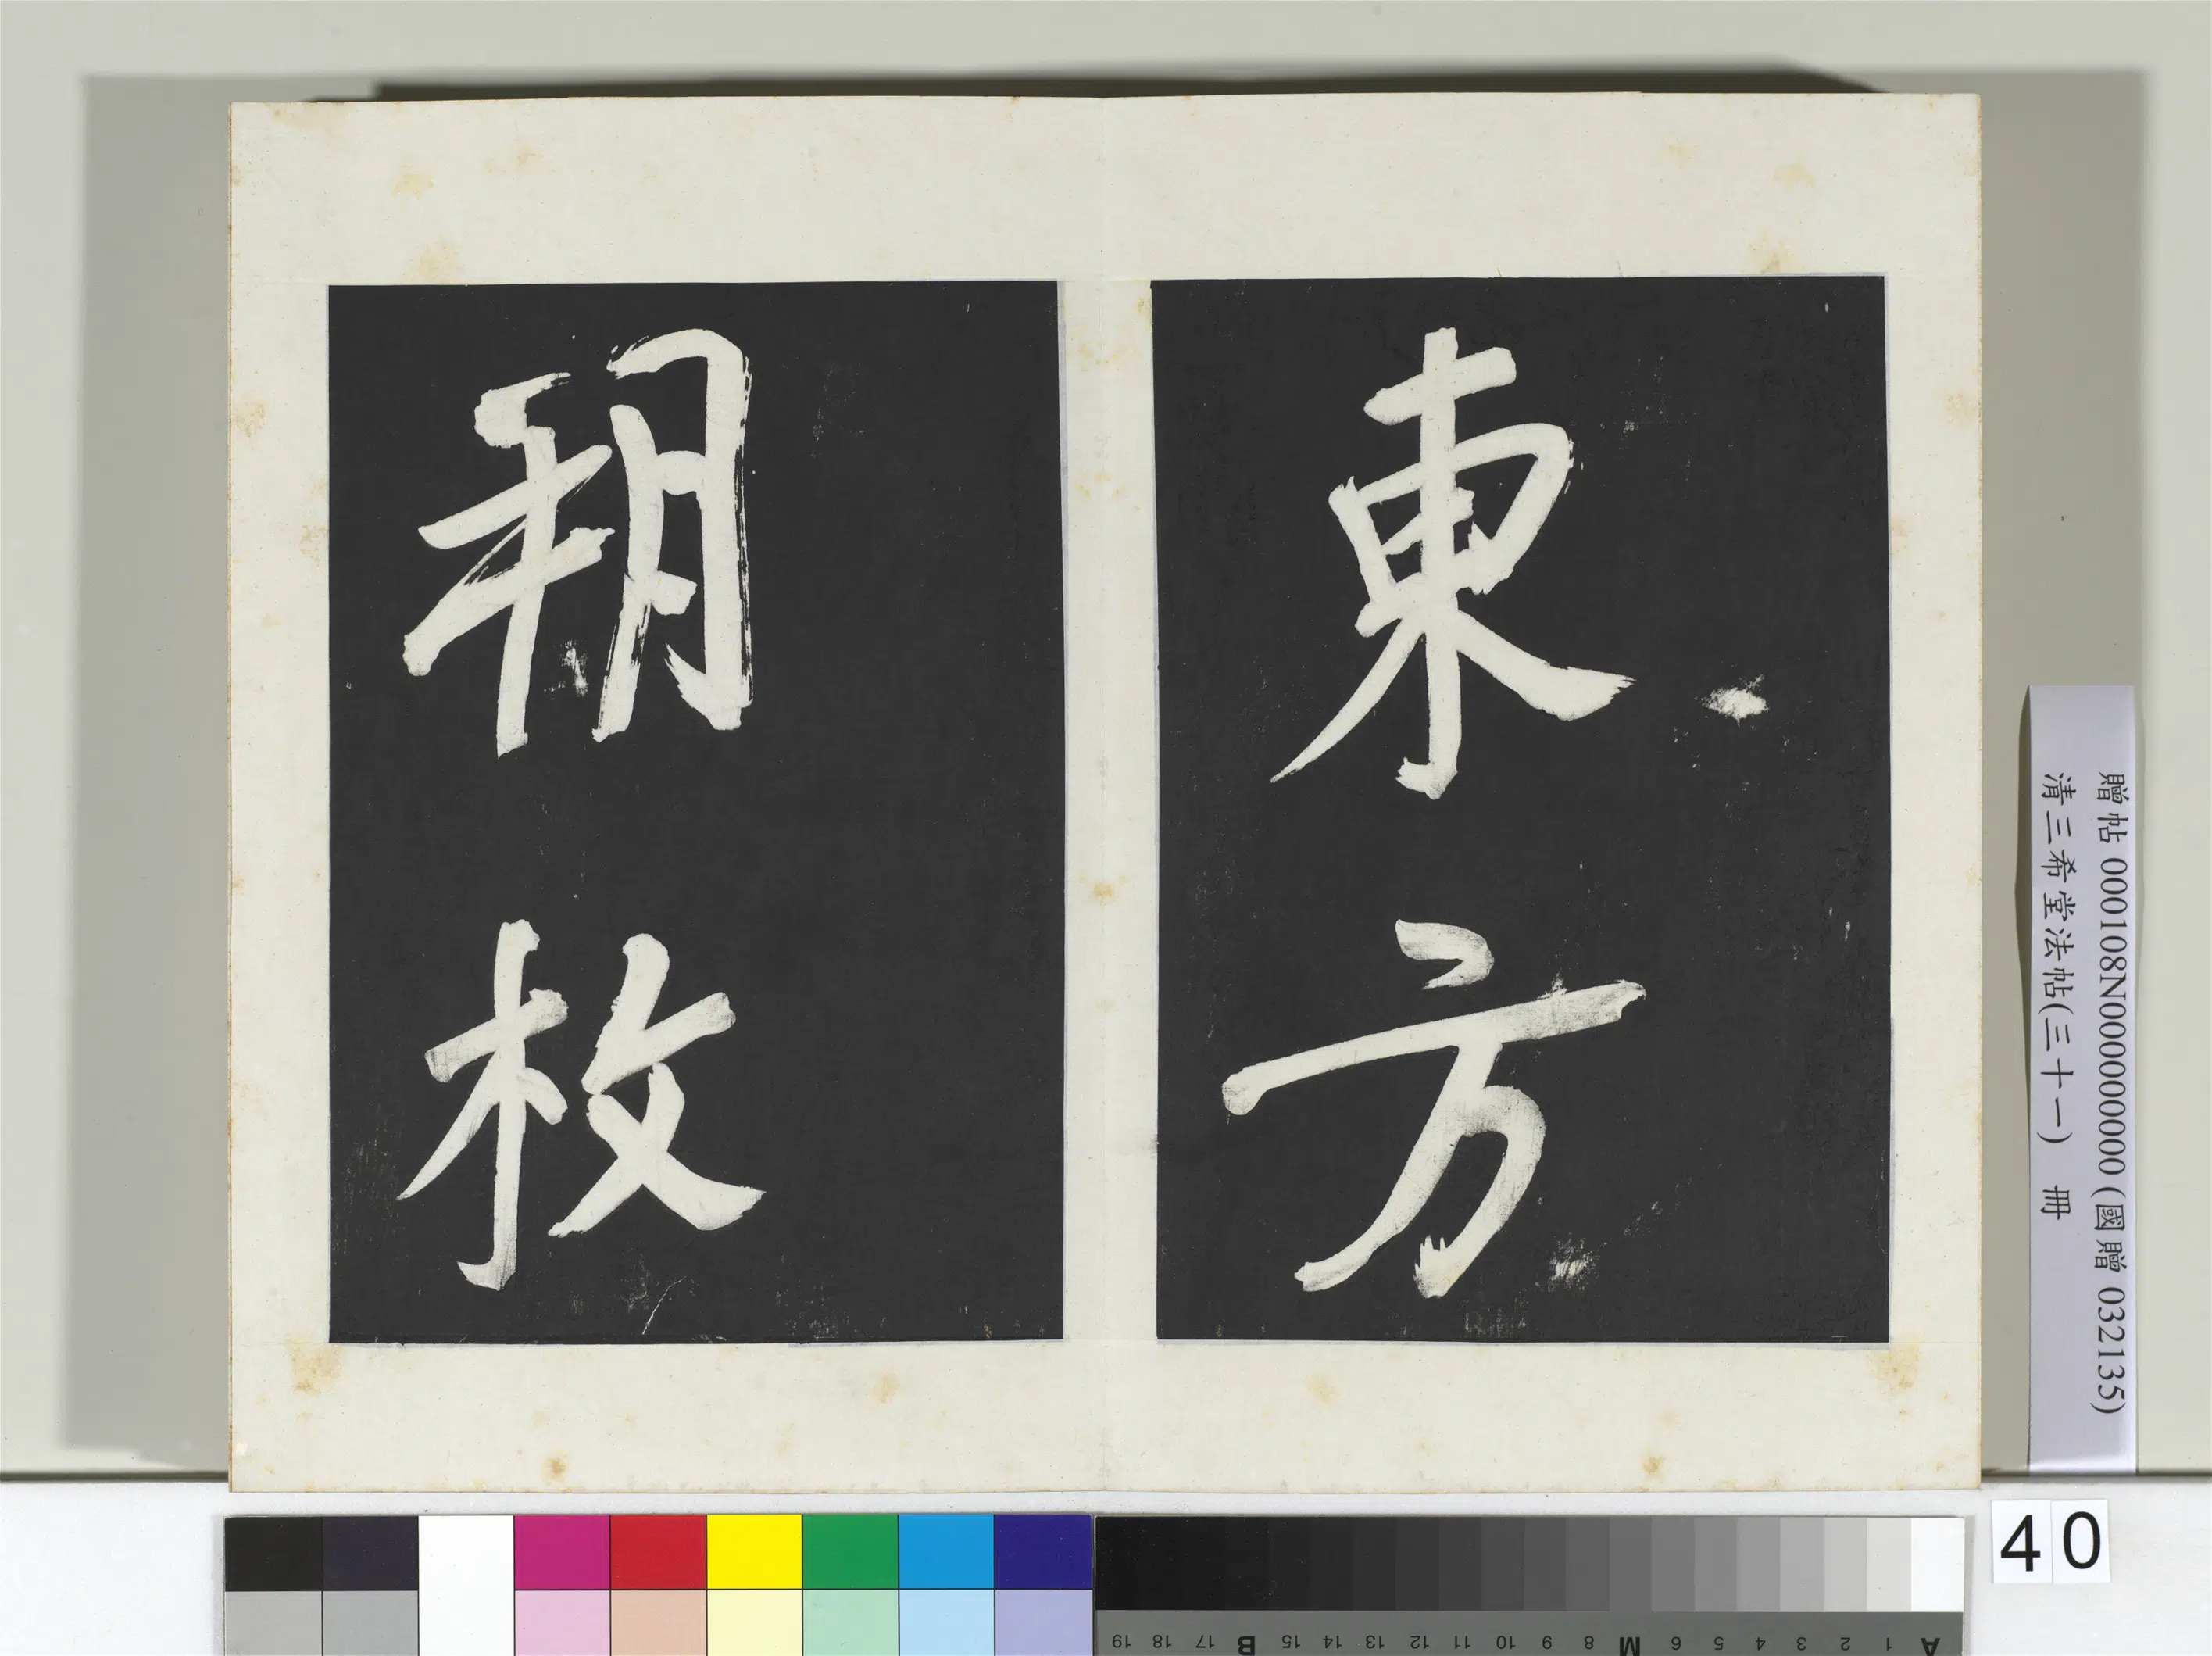 東方
朔枚
贈帖 000108N000000000 (國贈 032135)
清三希堂法帖(三十一) 冊
40
A 1 2 3 4 5 6 M 8 9 10 11 12 13 14 15 B 17 18 19